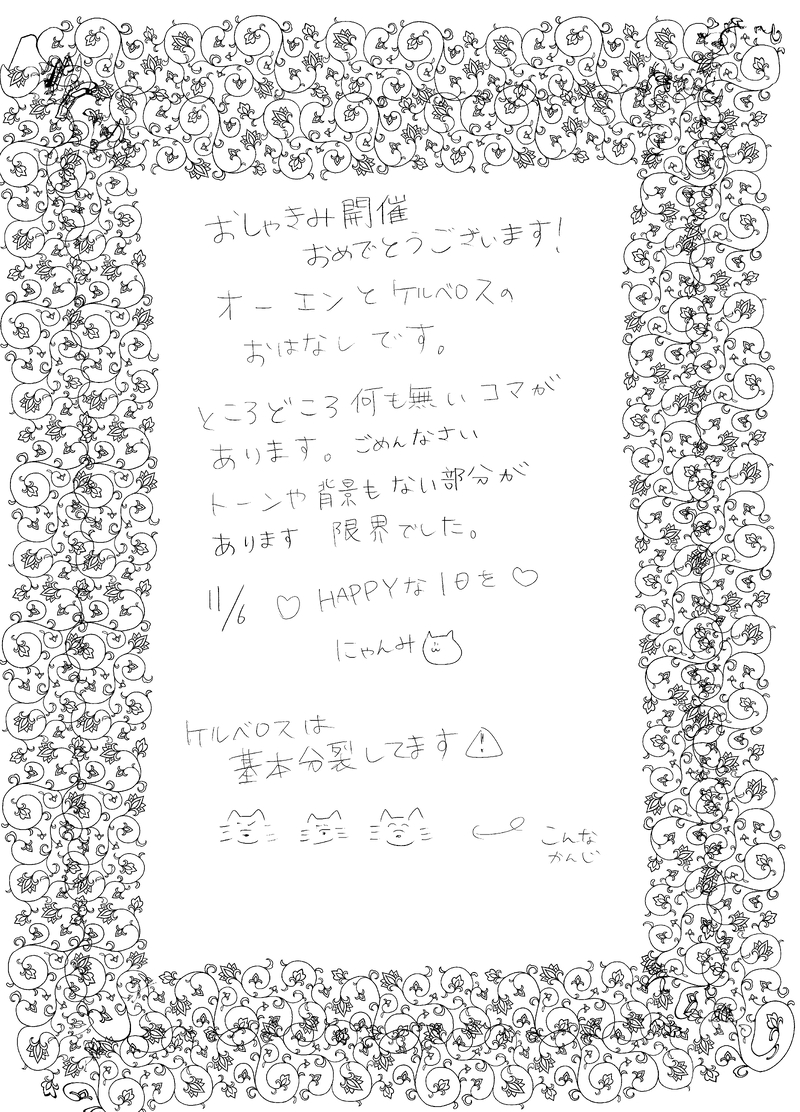 おしゃきみ開催
おめでとうございます!
オーエンとケルベロスの
おはなしです。
ところどころ何も無いコマが
あります。ごめんなさい
トーンや背景もない部分が
あります 限界でした。
11/6 ♡ HAPPYな1日を ♡
にゃんみ
ケルベロスは
基本分裂してます⚠
こんな
かんじ